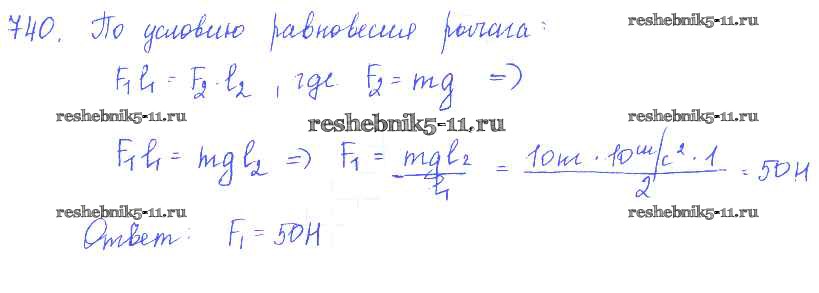 740. По условию равновесия рычага:
reshebnik5-11.ru
F₁l₁ = F₂·l₂, где F₂ = mg =>
reshebnik5-11.ru
reshebnik5-11.ru
reshebnik5-11.ru
F₁l₁ = mgl₂ => F₁ = mgl₂/l₁ = 10кг · 10м/с² · 1/2 = 50Н
reshebnik5-11.ru
reshebnik5-11.ru
Ответ: F₁ = 50Н